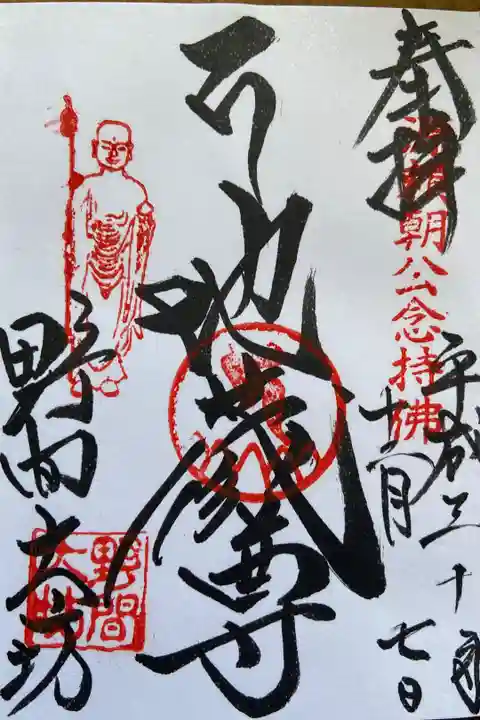 奉拝
源頼朝公念持佛
平成三十年
十二月七日
開運地蔵尊
野間大坊
野間
大坊